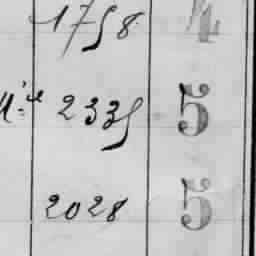 1758 4
M.le 2335 5
2028 5